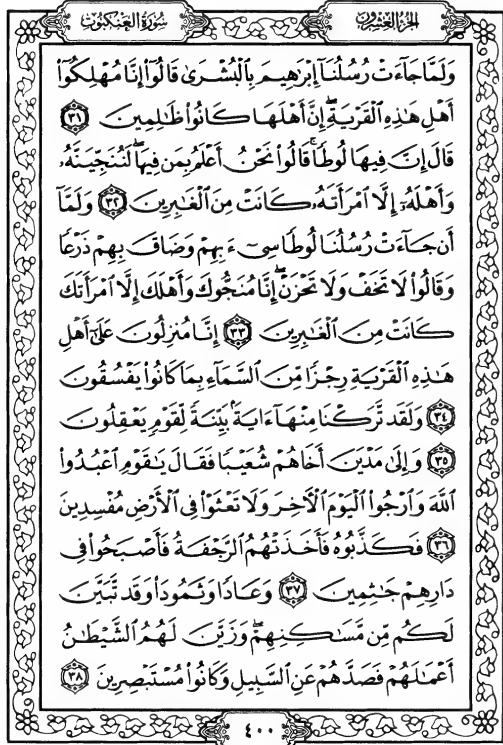 الجزء العشرون سورة العنكبوت
وَلَمَّا جَآءَتْ رُسُلُنَآ إِبْرَٰهِيمَ بِٱلْبُشْرَىٰ قَالُوٓا۟ إِنَّا مُهْلِكُوٓا۟
أَهْلِ هَٰذِهِ ٱلْقَرْيَةِ ۖ إِنَّ أَهْلَهَا كَانُوا۟ ظَٰلِمِينَ ٣١
قَالَ إِنَّ فِيهَا لُوطًا ۚ قَالُوا۟ نَحْنُ أَعْلَمُ بِمَن فِيهَا ۖ لَنُنَجِّيَنَّهُۥ
وَأَهْلَهُۥٓ إِلَّا ٱمْرَأَتَهُۥ كَانَتْ مِنَ ٱلْغَٰبِرِينَ ٣٢ وَلَمَّآ
أَن جَآءَتْ رُسُلُنَا لُوطًا سِىٓءَ بِهِمْ وَضَاقَ بِهِمْ ذَرْعًا
وَقَالُوا۟ لَا تَخَفْ وَلَا تَحْزَنْ ۖ إِنَّا مُنَجُّوكَ وَأَهْلَكَ إِلَّا ٱمْرَأَتَكَ
كَانَتْ مِنَ ٱلْغَٰبِرِينَ ٣٣ إِنَّا مُنزِلُونَ عَلَىٰٓ أَهْلِ
هَٰذِهِ ٱلْقَرْيَةِ رِجْزًا مِّنَ ٱلسَّمَآءِ بِمَا كَانُوا۟ يَفْسُقُونَ
٣٤ وَلَقَد تَّرَكْنَا مِنْهَآ ءَايَةًۢ بَيِّنَةً لِّقَوْمٍ يَعْقِلُونَ
٣٥ وَإِلَىٰ مَدْيَنَ أَخَاهُمْ شُعَيْبًا فَقَالَ يَٰقَوْمِ ٱعْبُدُوا۟
ٱللَّهَ وَٱرْجُوا۟ ٱلْيَوْمَ ٱلْءَاخِرَ وَلَا تَعْثَوْا۟ فِى ٱلْأَرْضِ مُفْسِدِينَ
٣٦ فَكَذَّبُوهُ فَأَخَذَتْهُمُ ٱلرَّجْفَةُ فَأَصْبَحُوا۟ فِى
دَارِهِمْ جَٰثِمِينَ ٣٧ وَعَادًا وَثَمُودَا۟ وَقَد تَّبَيَّنَ
لَكُم مِّن مَّسَٰكِنِهِمْ ۖ وَزَيَّنَ لَهُمُ ٱلشَّيْطَٰنُ
أَعْمَٰلَهُمْ فَصَدَّهُمْ عَنِ ٱلسَّبِيلِ وَكَانُوا۟ مُسْتَبْصِرِينَ ٣٨
٤٠٠